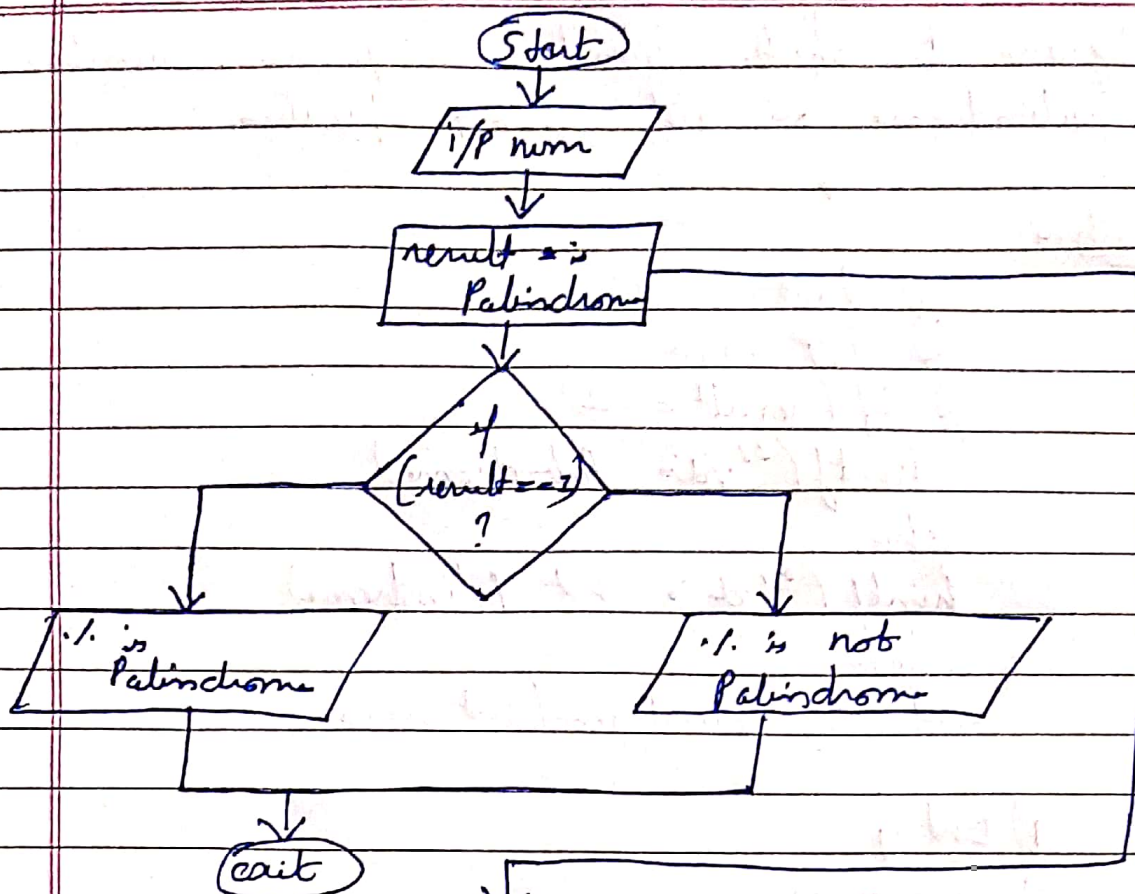 Start
i/p num
result = is
Palindrome
if
(result==1)
?
·/· is
Palindrome
·/· is not
Palindrome
exit